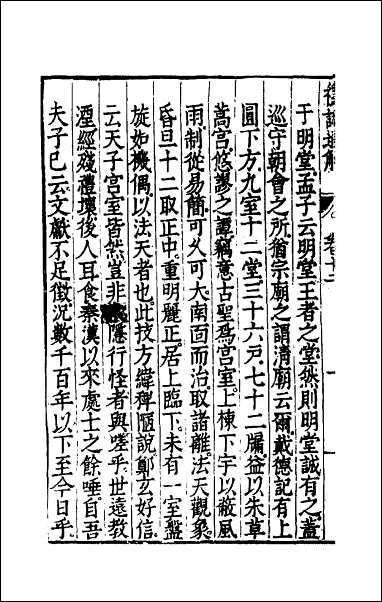 禮記通解 卷十二
于明堂孟子云明堂王者之堂然則明堂誠有之蓋
巡守朝會之所猶宗廟之謂淸廟云爾戴德記有上
圓下方九室十二堂三十六戶七十二牖益以朱草
蒿宮悠謬之譚竊意古聖爲宮室上棟下宇以蔽風
雨制從易簡可久可大南面而治取諸離法天觀象
昏旦十二取正中重明麗正居上臨下未有一室盤
旋如機偶以法天者也此技方緯稗陋說鄭玄好信
云天子宮室皆然豈非隱行怪者與嗟乎世遠敎
湮經殘禮壞後人耳食秦漢以來處士之餘唾自吾
夫子已云文獻不足徵況數千百年以下至今日乎